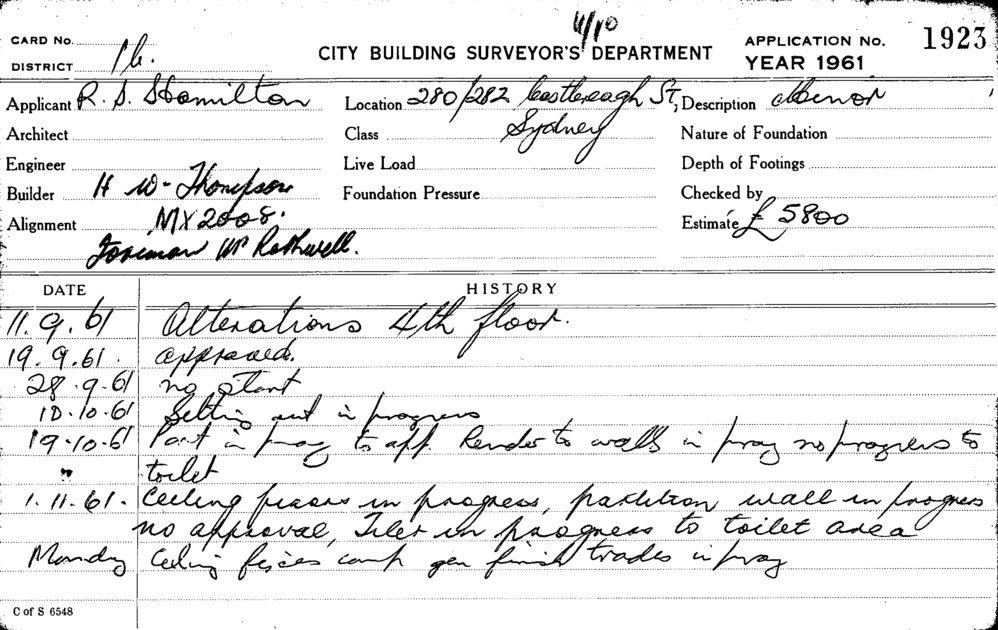 4/10
CARD No.
CITY BUILDING SURVEYOR'S DEPARTMENT
APPLICATION No. 1923
DISTRICT
YEAR 1961
Applicant R. S. Hamilton
Location 280/282 Castlereagh St,
Sydney
Description Minor
Architect
Class
Nature of Foundation
Engineer
Live Load
Depth of Footings
Builder H W - Thompson
Foundation Pressure
Checked by
Alignment MX2008.
Estimate £ 5800
Foreman Mr Rothwell.
DATE HISTORY
11.9.61 Alterations 4th floor.
19.9.61. approved.
28.9.61 no start
10.10.61 Setting out in progress
19.10.61 Part in prog to app. Render to walls in prog no progress to
" toilet
1.11.61. Ceiling fixers in progress, partition wall in progress
no approval, Tiler in progress to toilet area
Monday Ceiling fixers comp gen finish trades in prog
C of S 6548